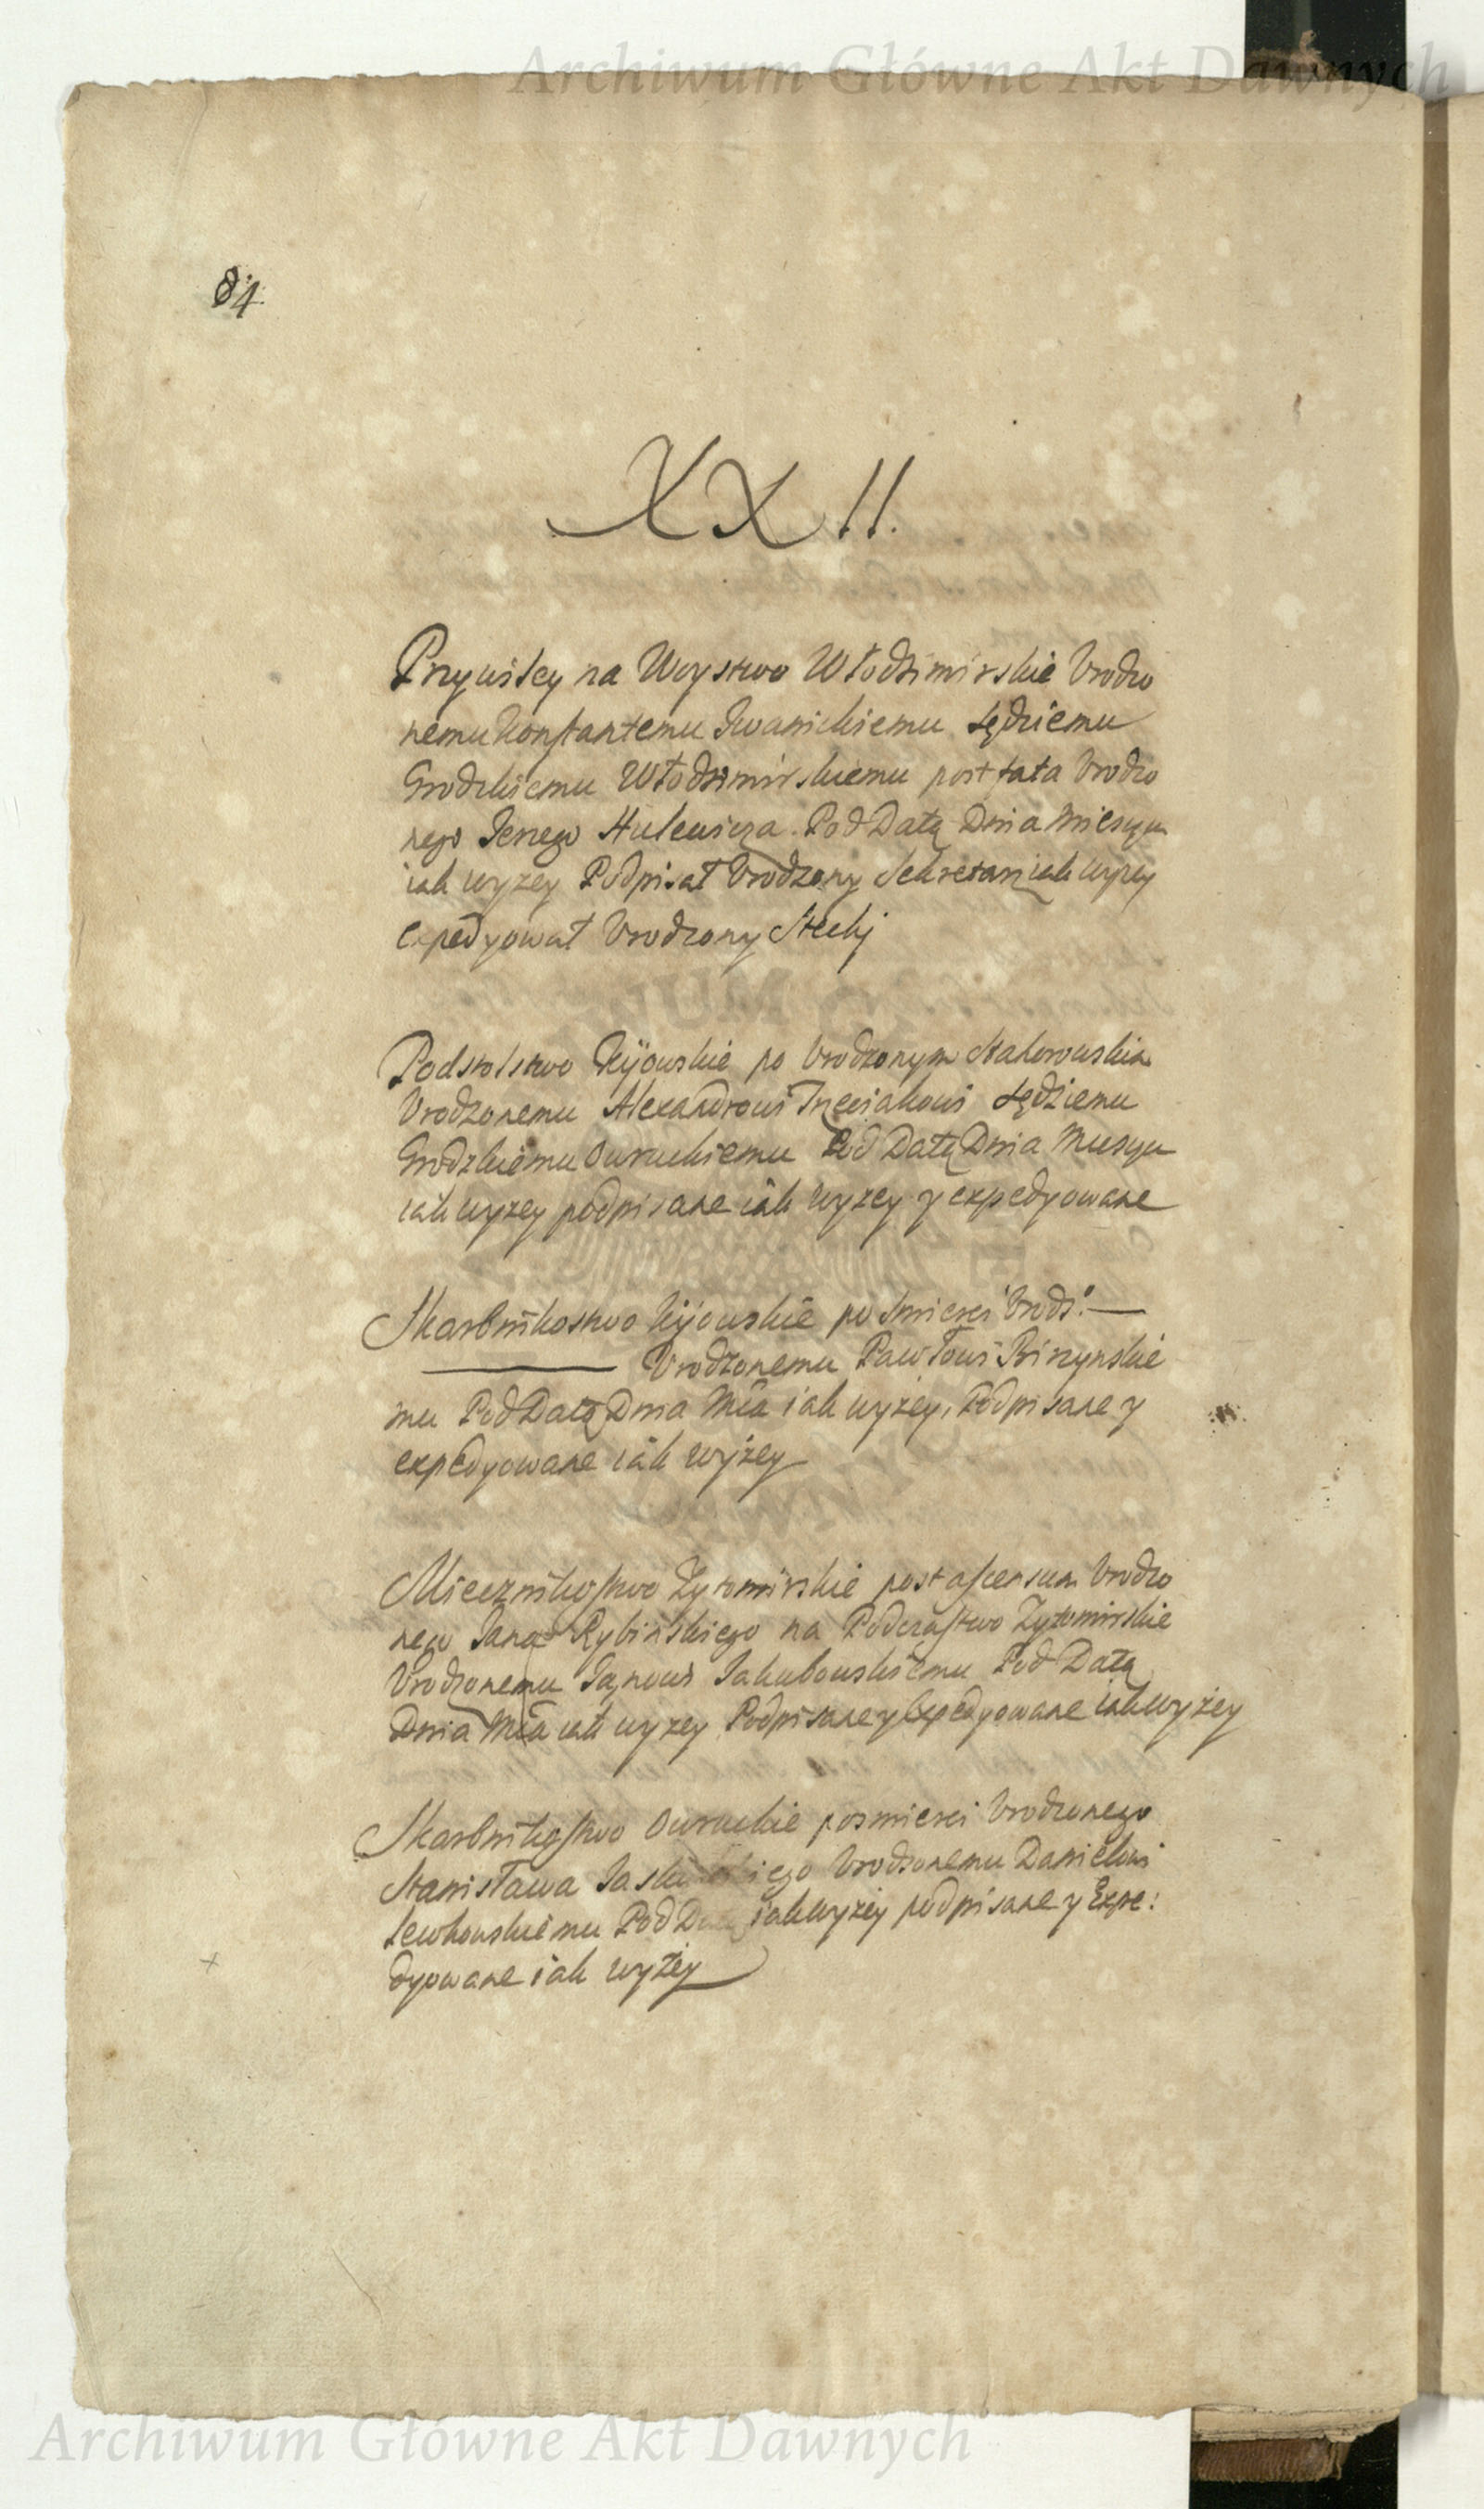 Archiwum Główne Akt Dawnych
84.
XXII.
Przywiley na Woystwo Włodzimirskie Urodzo
nemu Konstantemu Iwanickiemu Sędziemu
Grodzkiemu Włodzimirskiemu post fata Urodzo
nego Jerzego Hulewicza. Pod Datą Dnia Miesiąca
iak wyzey Podpisał Urodzony Sekretarz iak wyzey
expedyował Urodzony Stecki
Podstolstwo Kijowskie po Urodzonym
Urodzonemu Alexandrowi Trzeciakowi Sędziemu
Grodzkiemu Owruckiemu Pod Datą Dnia Miesiąca
iak wyzey podpisane iak wyzey y expedyowane
Skarbnikostwo Kijowskie po smierci Urodz:
Urodzonemu Pawłowi Birzynskie
mu Pod Datą Dnia Mca iak wyzey, Podpisane y
expedyowane iak wyżey
Miecznikostwo Zytomirskie post ascensum Urodzo
nego Jana Rybińskiego na Podczastwo Zytomirskie
Urodzonemu Janowi Jakubowskiemu Pod Datą
Dnia Mca iak wyzey Podpisane y Expedyowane iak wyżey
Skarbnikostwo Owruckie po smierci Urodzonego
Stanisława Urodzonemu Danielowi
Lewkowskiemu Pod Datą iak wyzey podpisane y Expe:
dyowane iak wyżey
Archiwum Główne Akt Dawnych